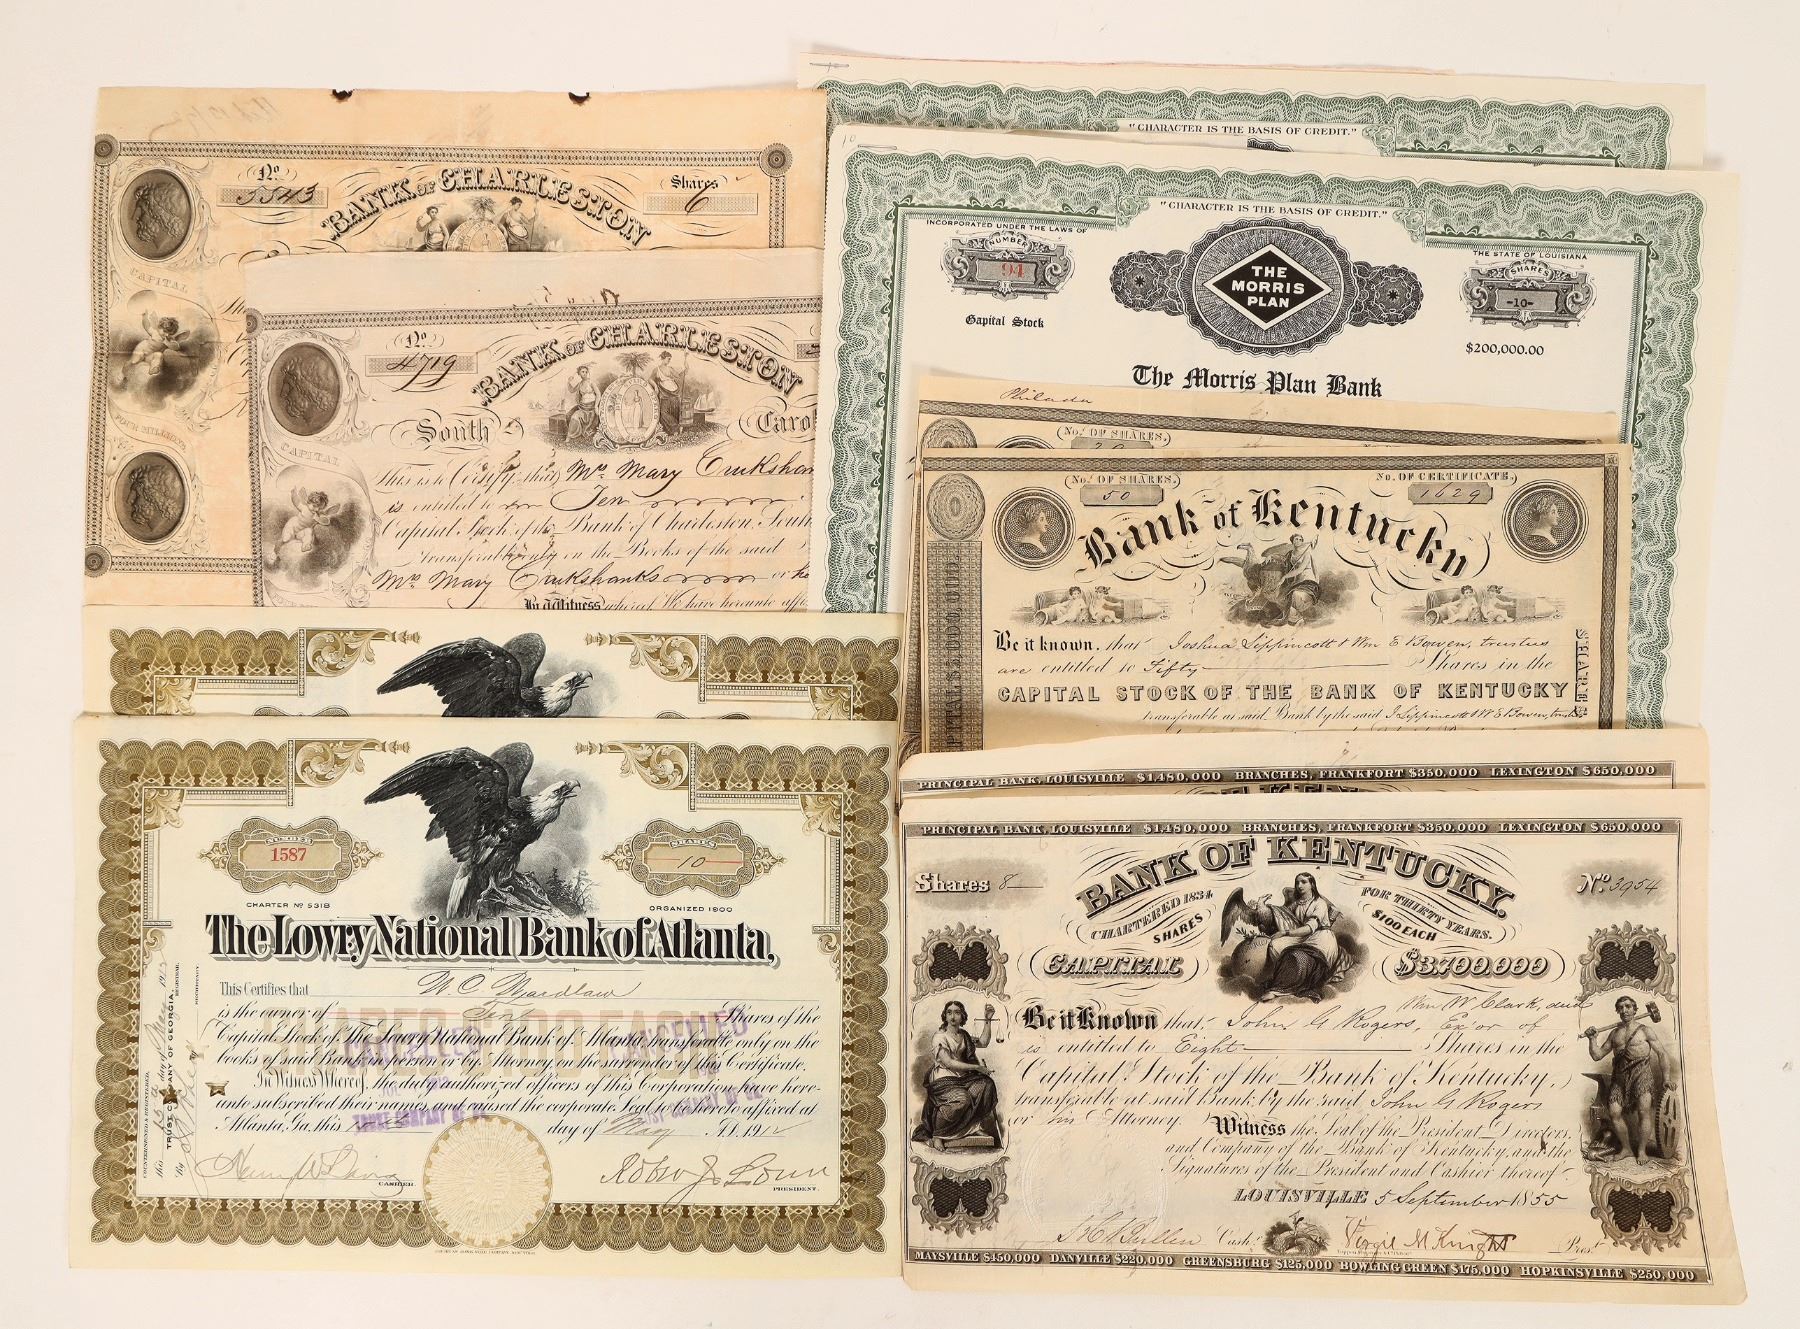 No.
5543
BANK OF CHARLESTON
Shares
6
CAPITAL
FOUR MILLIONS
No.
4719
BANK OF CHARLESTON
South
CAPITAL
This is to Certify, that Mrs. Mary
is entitled to Ten
Capital Stock of the Bank of Charleston, South
transferable only on the Books of the said
Mrs. Mary Cruikshanks or
In Witness whereof We have hereunto
1587
SHARES
10
CHARTER No 5318
ORGANIZED 1900
The Lowry National Bank of Atlanta,
This Certifies that W. C. Wardlaw
is the owner of Ten Shares of the
Capital Stock of The Lowry National Bank of Atlanta transferable only on the
books of said Bank in person or by Attorney on the surrender of this Certificate.
In Witness Whereof, the duly authorized officers of this Corporation have here-
unto subscribed their names and caused the corporate Seal to be hereto affixed at
Atlanta, Ga. this day of May A.D. 1912
CASHIER.
PRESIDENT.
COUNTERSIGNED & REGISTERED.
TRUST COMPANY OF GEORGIA,
REGISTRAR.
CANCELLED
CANCELLED
"CHARACTER IS THE BASIS OF CREDIT."
"CHARACTER IS THE BASIS OF CREDIT."
INCORPORATED UNDER THE LAWS OF
THE STATE OF LOUISIANA
NUMBER
94
THE
MORRIS
PLAN
SHARES
-10-
Capital Stock
$200,000.00
The Morris Plan Bank
Philada
No. OF SHARES.
20
No. OF SHARES.
50
No. OF CERTIFICATE.
1629
Bank of Kentucky
Be it known, that Joshua Lippincott & Wm E Bowen, trustees
are entitled to Fifty Shares in the
CAPITAL STOCK OF THE BANK OF KENTUCKY
transferable as said Bank by the said J Lippincott & W E Bowen, trustees
PRINCIPAL BANK, LOUISVILLE $1,480,000 BRANCHES, FRANKFORT $350,000 LEXINGTON $650,000
PRINCIPAL BANK, LOUISVILLE $1,480,000 BRANCHES, FRANKFORT $350,000 LEXINGTON $650,000
BANK OF KENTUCKY.
Shares 8
No 3954
CHARTERED 1834
FOR THIRTY YEARS.
SHARES
$100 EACH
CAPITAL
$3,700,000
Wm W Clark, decd
Be it Known that John G Rogers, Exor of
is entitled to Eight Shares in the
Capital Stock of the Bank of Kentucky,
transferable at said Bank by the said John G Rogers
or his Attorney. Witness the Seal of the President Directors,
and Company of the Bank of Kentucky, and the
Signatures of the President and Cashier thereof
LOUISVILLE 5 September 1855
Cash.
Virgil McKnight Prest.
MAYSVILLE $450,000 DANVILLE $220,000 GREENSBURG $125,000 BOWLING GREEN $175,000 HOPKINSVILLE $250,000